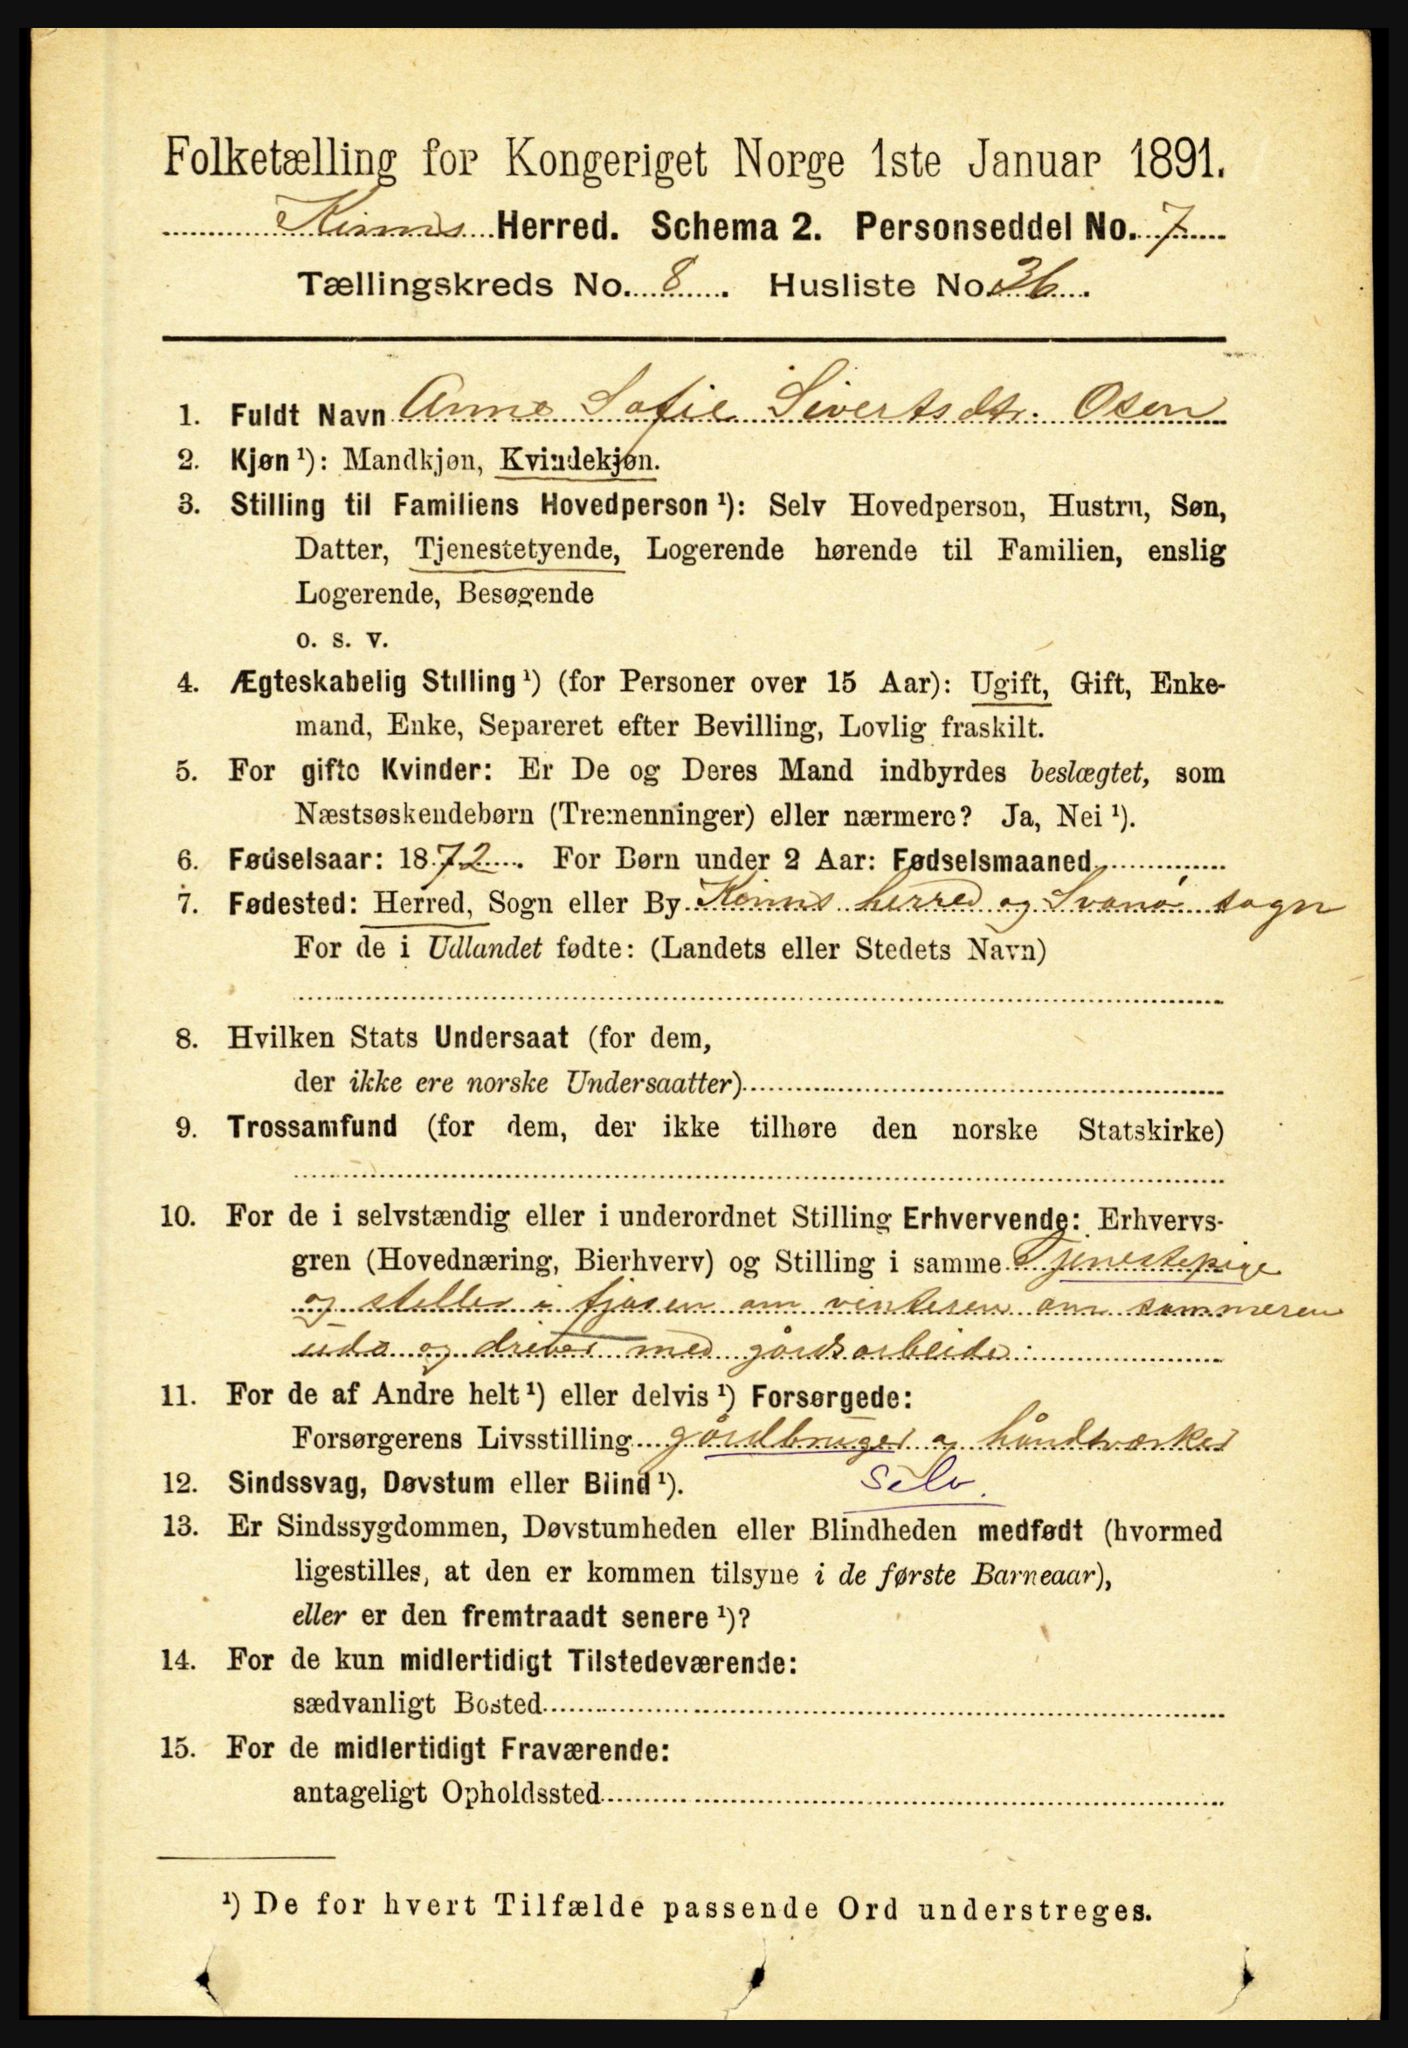 Folketælling for Kongeriget Norge 1ste Januar 1891.
Kinns Herred. Schema 2. Personseddel No. 7
Tællingskreds No. 8. Husliste No. 36.
1. Fuldt Navn Anne Sofie Sivertsdtr. Osen
2. Kjøn ¹): Mandkjøn, Kvindekjøn.
3. Stilling til Familiens Hovedperson ¹): Selv Hovedperson, Hustru, Søn,
Datter, Tjenestetyende, Logerende hørende til Familien, enslig
Logerende, Besøgende
o. s. v.
4. Ægteskabelig Stilling ¹) (for Personer over 15 Aar): Ugift, Gift, Enke-
mand, Enke, Separeret efter Bevilling, Lovlig fraskilt.
5. For gifte Kvinder: Er De og Deres Mand indbyrdes beslægtet, som
Næstsøskendebørn (Tremenninger) eller nærmere? Ja, Nei ¹).
6. Fødselsaar: 1872. For Børn under 2 Aar: Fødselsmaaned
7. Fødested: Herred, Sogn eller By Kinns herred og Svanø sogn
For de i Udlandet fødte: (Landets eller Stedets Navn)
8. Hvilken Stats Undersaat (for dem,
der ikke ere norske Undersaatter)
9. Trossamfund (for dem, der ikke tilhøre den norske Statskirke)
10. For de i selvstændig eller i underordnet Stilling Erhvervende: Erhvervs-
gren (Hovednæring, Bierhverv) og Stilling i samme Tjenestepige
og steller i fjøsen om vinteren om sommeren
ude og driver med gårdsarbeide.
11. For de af Andre helt ¹) eller delvis ¹) Forsørgede:
Forsørgerens Livsstilling gårdbruger og håndværker
12. Sindssvag, Døvstum eller Blind ¹). Selv.
13. Er Sindssygdommen, Døvstumheden eller Blindheden medfødt (hvormed
ligestilles, at den er kommen tilsyne i de første Barneaar),
eller er den fremtraadt senere ¹)?
14. For de kun midlertidigt Tilstedeværende:
sædvanligt Bosted
15. For de midlertidigt Fraværende:
antageligt Opholdssted
¹) De for hvert Tilfælde passende Ord understreges.